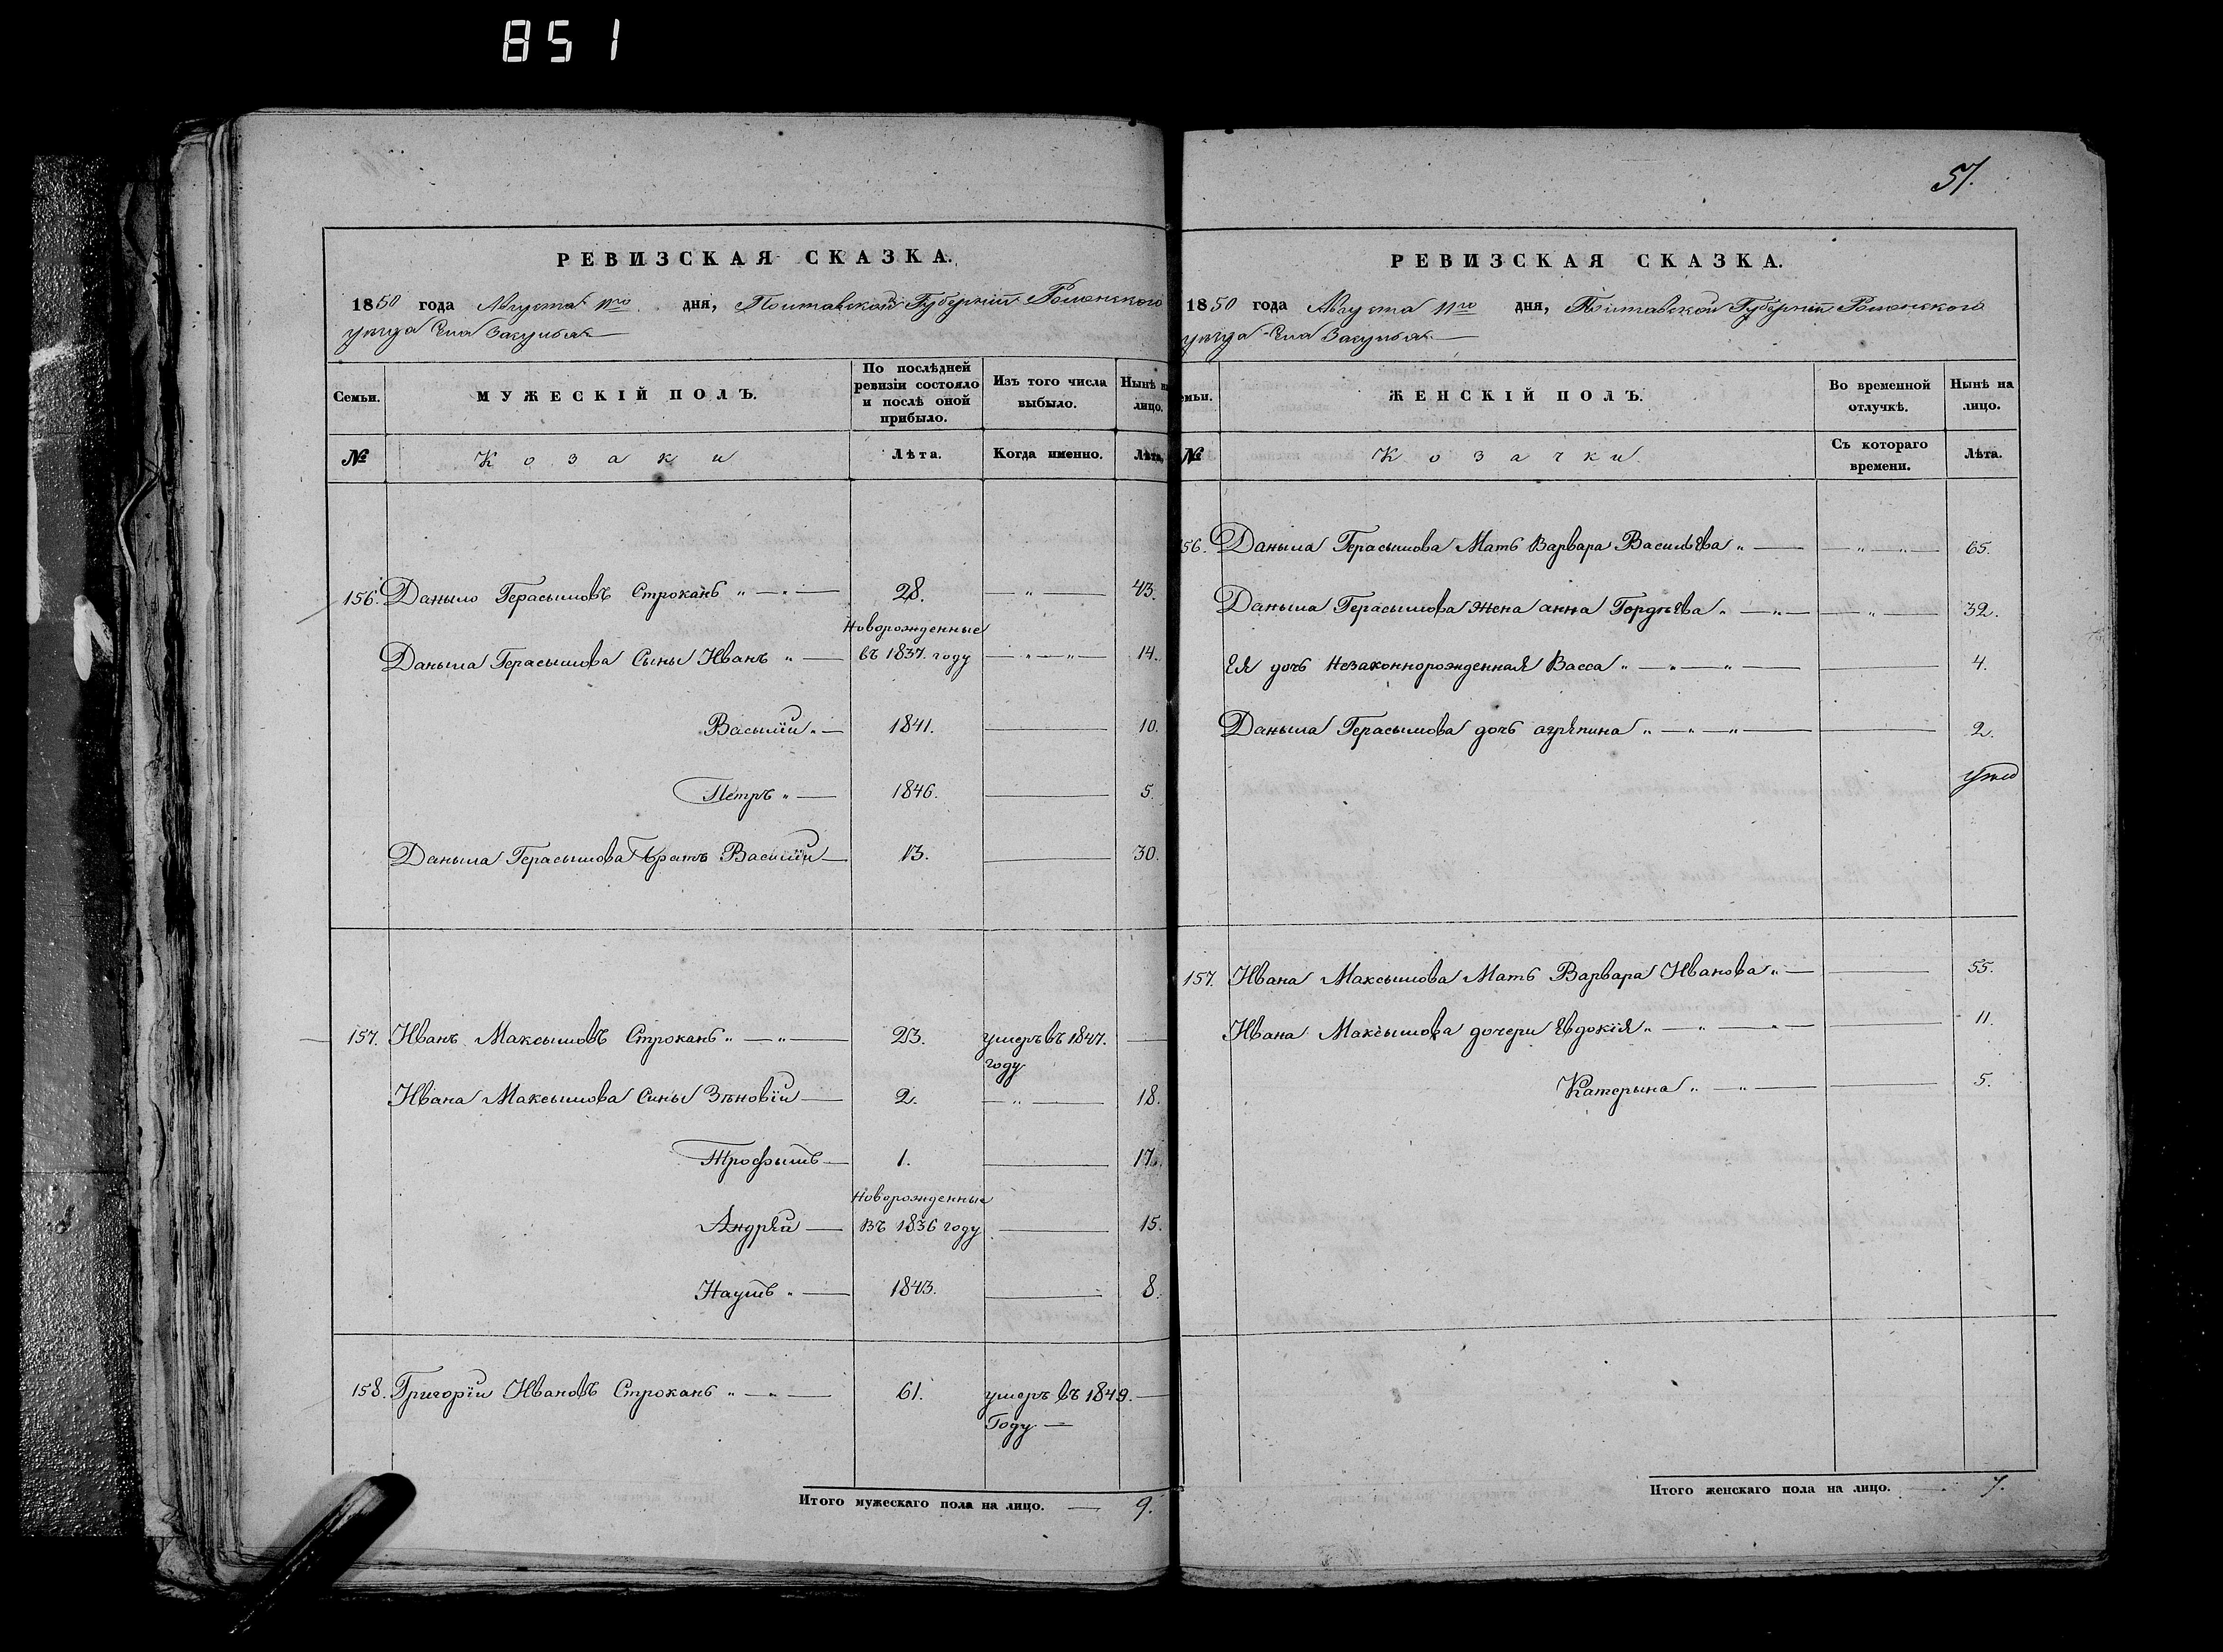 851
РЕВИЗСКАЯ СКАЗКА.
1850 года Августа 11го дня, Полтавской Губерніи Роменского
уезда Села Закупъ
Семьи.
МУЖЕСКІЙ ПОЛЪ.
По послѣдней ревизіи состояло и послѣ оной прибыло.
Изъ того числа выбыло.
Нынѣ на лицо.
№
Козаки
Лѣта.
Когда именно.
Лѣта.
156. Даныло Герасымовъ Строкань 28. 43.
Новорожденные
Даныла Герасымова Сыны Иванъ въ 1837. году 14.
Васылій 1841. 10.
Петръ 1846. 5.
Даныла Герасымова братъ Василій 13. 30.
157. Иванъ Максымовъ Строкань 23. умеръ въ 1847. году
Ивана Максымова Сыны Зѣновій 2. 18.
Трофымъ 1. 17.
Новорожденные
Андрей въ 1836 году 15.
Наумъ 1843. 8.
158. Григорій Ивановъ Строкань 61. умеръ въ 1849.
Году
Итого мужескаго пола на лицо. 9.
51.
РЕВИЗСКАЯ СКАЗКА.
1850 года Августа 11го дня, Полтавской Губерніи Роменского
уезда Села
емьи.
ЖЕНСКІЙ ПОЛЪ.
Во временной отлучкѣ.
Нынѣ на лицо.
№
Козачки
Съ котораго времени.
Лѣта.
156. Даныла Герасымова Мать Варвара Васильева 65.
Даныла Герасымова жена анна Гордѣева 32.
Ея дочь Незаконнорожденная Васса 4.
Даныла Герасымова дочь агрепина 2.
157. Ивана Максымова Мать Варвара Иванова 55.
Ивана Максымова дочери Евдокія 11.
Катерына 5.
Итого женскаго пола на лицо. 7.